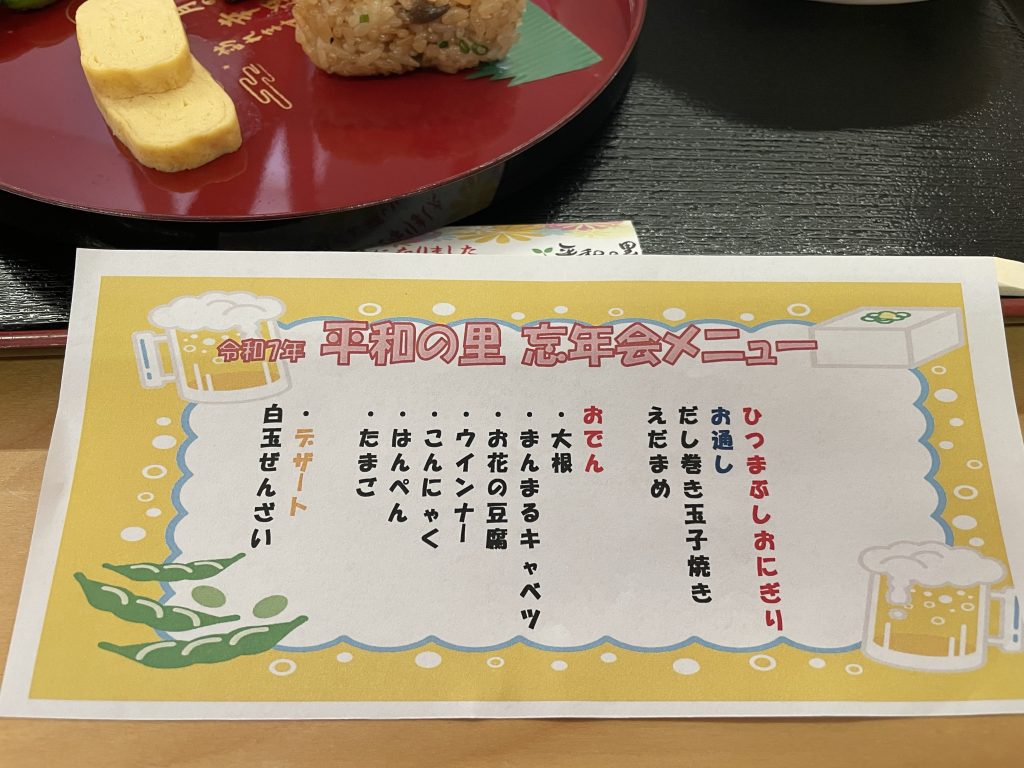 になりました
平和の里
令和7年 平和の里 忘年会メニュー
ひつまぶしおにぎり
お通し
だし巻き玉子焼き
えだまめ
おでん
・大根
・まんまるキャベツ
・お花の豆腐
・ウインナー
・こんにゃく
・はんぺん
・たまご
・デザート
白玉ぜんざい